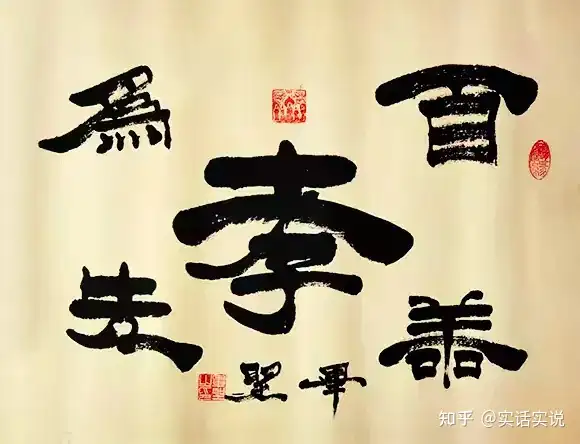 百善
孝
為先
畢聖
知乎 @实话实说